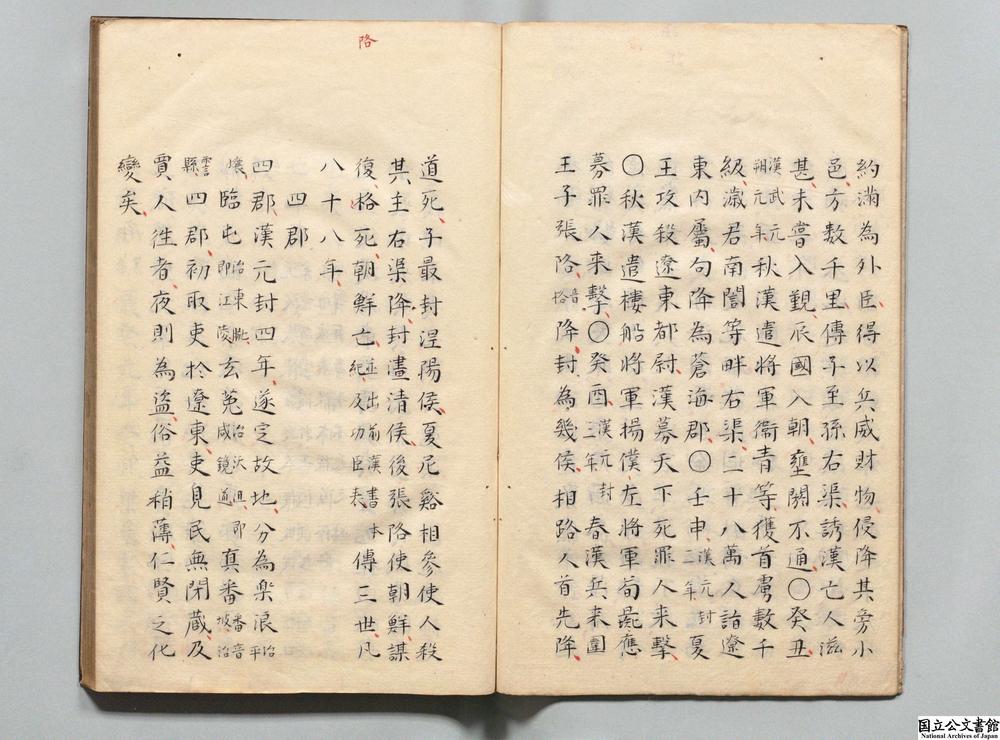 約滿為外臣得以兵威財物侵降其旁小
邑方数千里傳子至孫右渠誘漢亡人滋
甚未嘗入覲辰國入朝壅閼不通〇癸丑
漢武元朔元年秋漢遣將軍衛青等獲首虜數千
級濊君南閭等畔右渠二十八萬人詣遼
東内屬句降為蒼海郡〇壬申漢元封二年夏
王攻殺遼東都尉漢募天下死罪人来擊
〇秋漢遣樓船將軍楊僕左將軍荀彘應
募罪人来擊〇癸酉漢元封三年春漢兵来圍
王子張降音挌降封為幾侯相路人首先降
道死子最封涅陽侯夏尼谿相參使人殺
其主右渠降封畫清侯後張降使朝鮮謀
復格死朝鮮亡並出前漢書本紀及功臣表傳三世凡
八十八年
四郡
四郡漢元封四年遂定故地分為楽浪治平
壤臨屯治東暆即江陵玄菟治沃沮即咸鏡道真番番音坡治
霅縣四郡初取吏於遼東吏見民無閉蔵及
賈人徃者夜則為盗俗益稍薄仁賢之化
變矣
挌
国立公文書館
National Archives of Japan